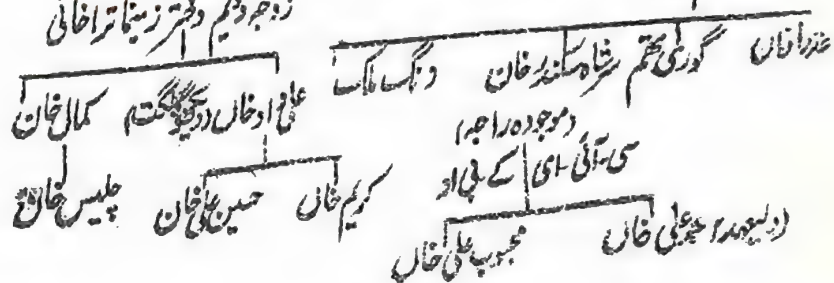 زوجہ دیم دختر زیتا تراخانی
عذرا خان گوری تھم سر شاہ سکندر خان دنگ ملک
علی داد خان (دیجیو گلگت) کمال خان
(موجودہ راجہ)
سی۔آئی۔ای کے۔بی او
کریم خاں حسین علی خان چلیس خان
(ولیعہد) علی خاں محبوب علی خاں